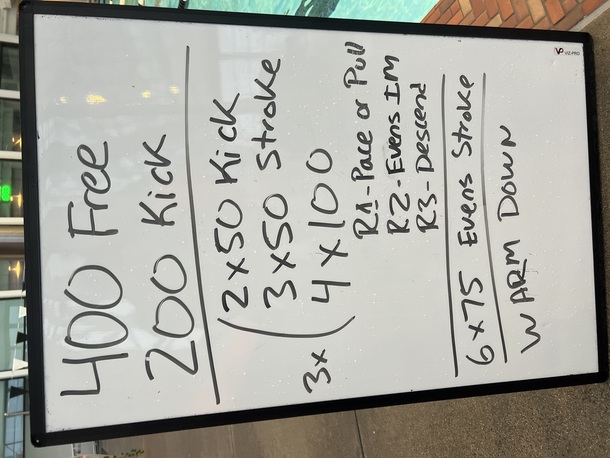 400 Free
200 Kick
2x50 Kick
3x50 Stroke
3x ( 4x100
R1-Pace or Pull
R2-Evens IM
R3-Descend
6x75 Evens Stroke
WARM DOWN
VIZ-PRO